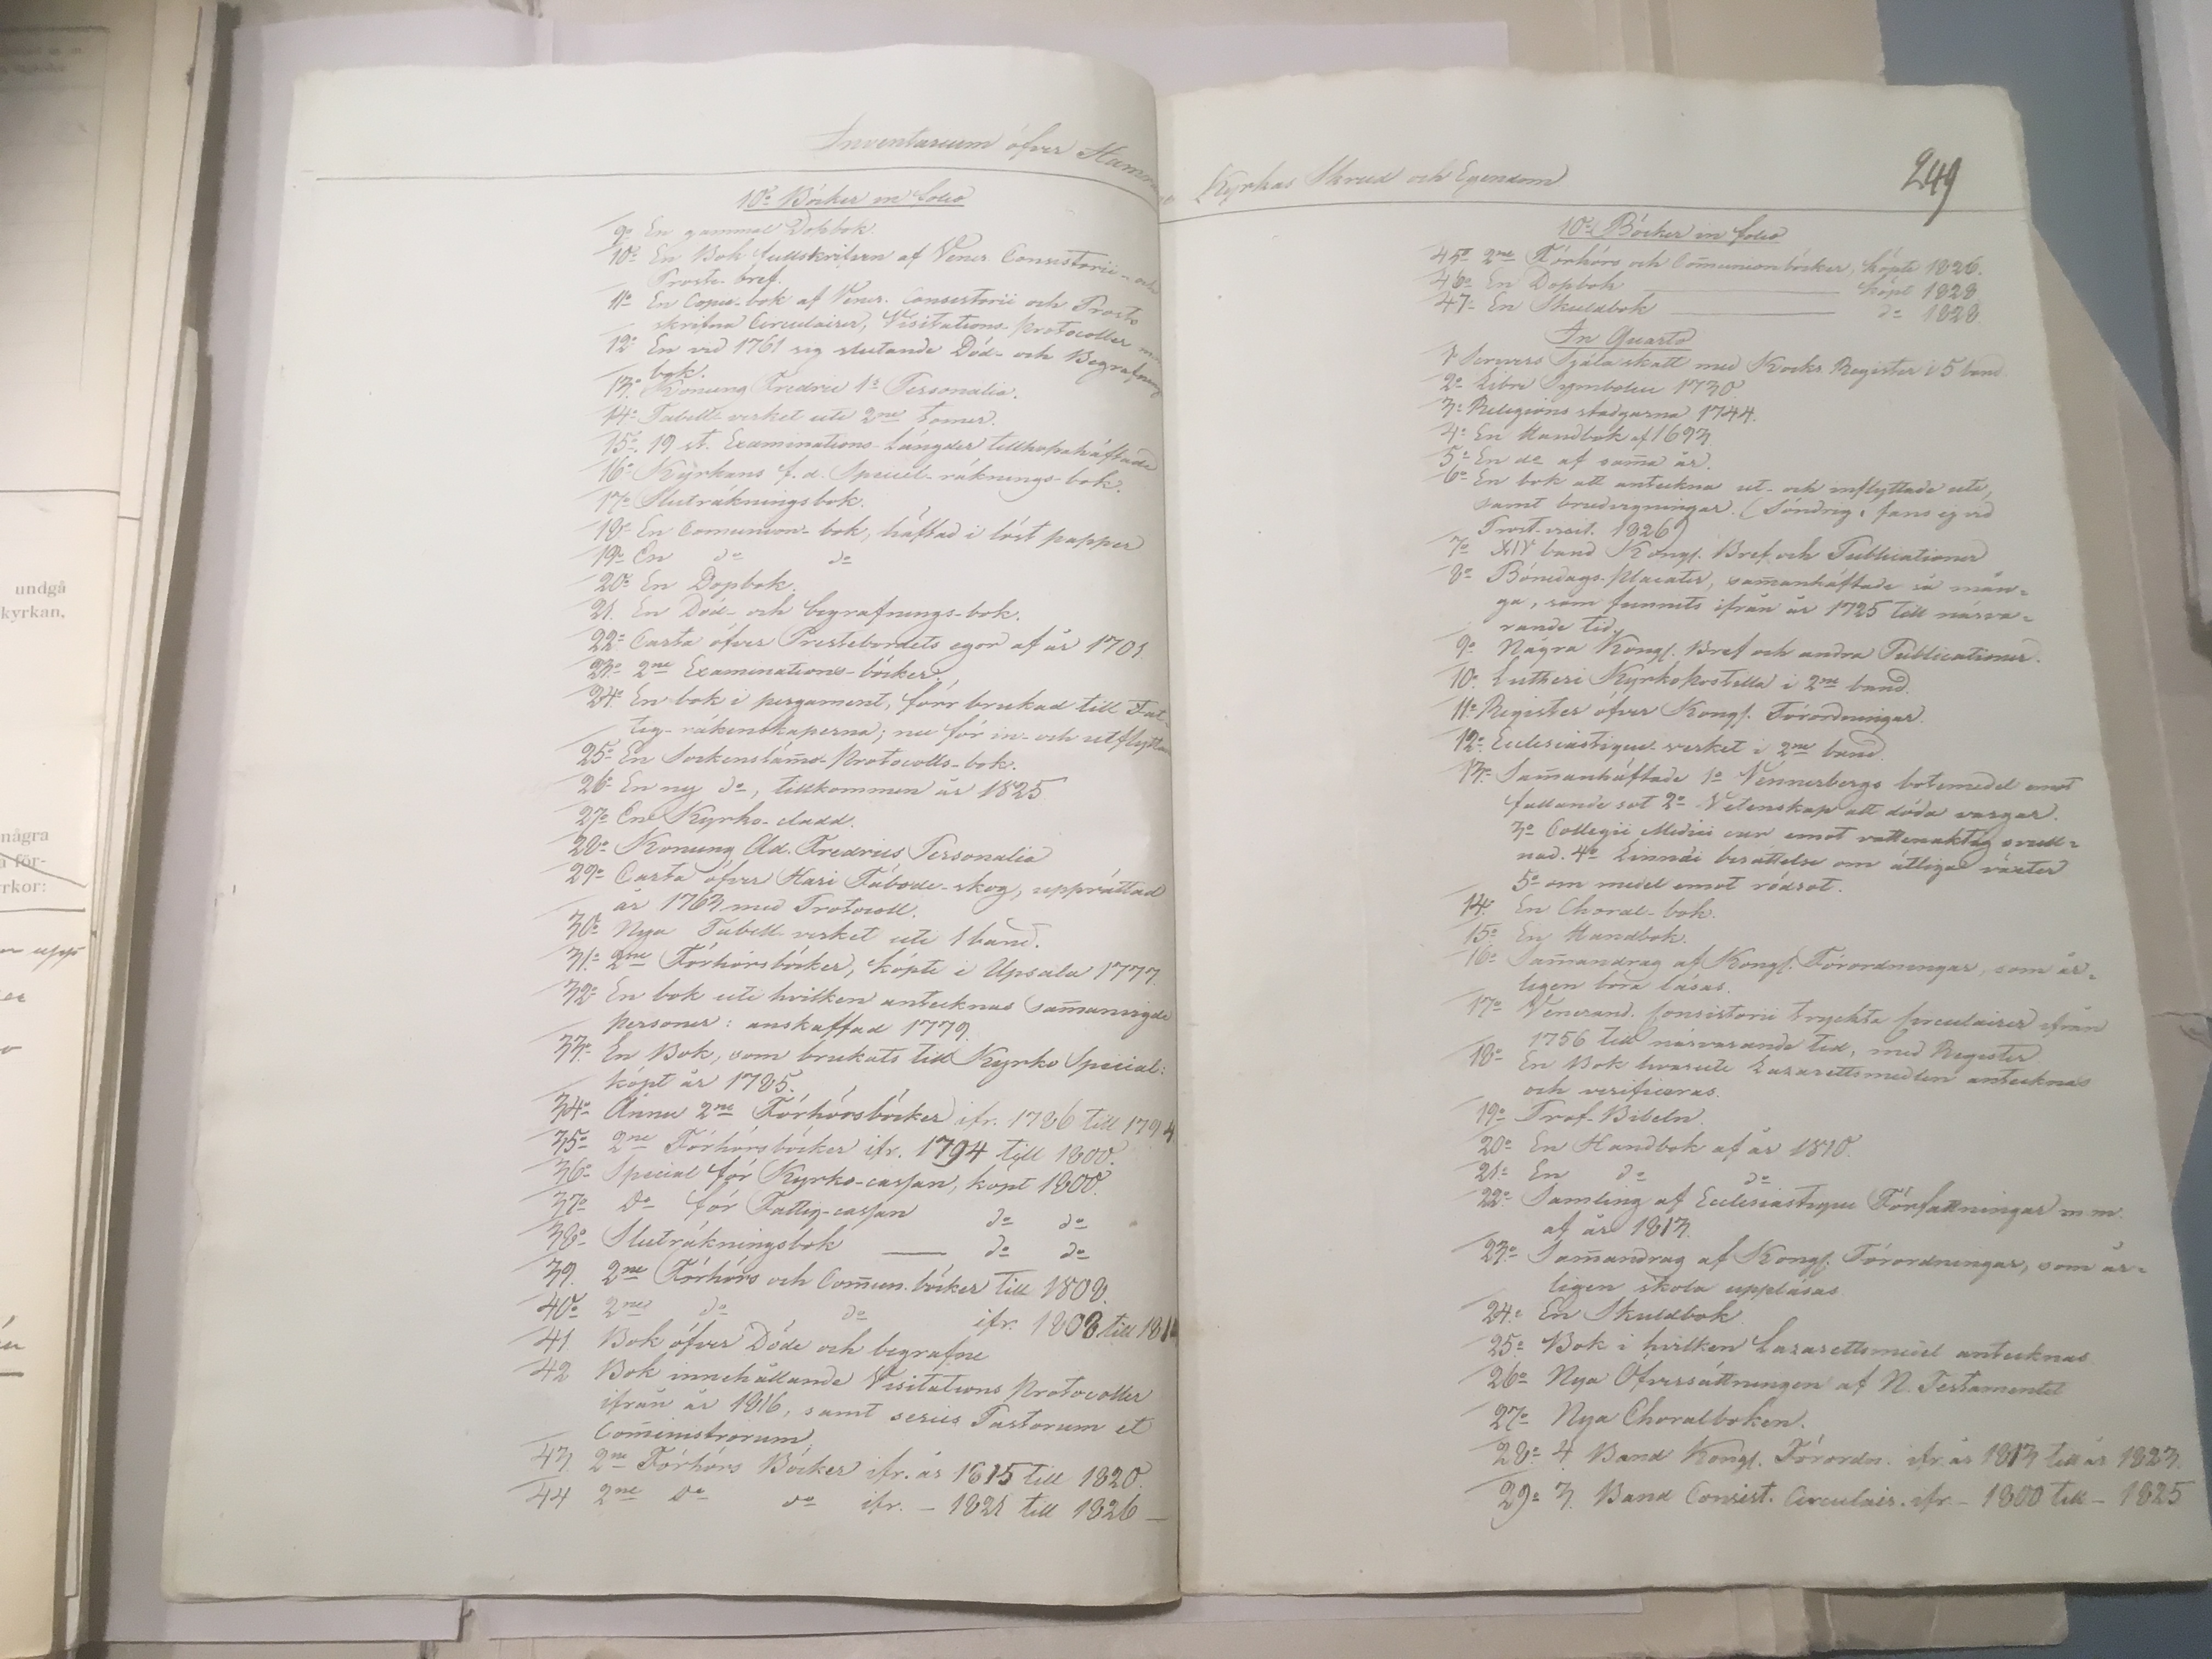 undgå
kyrkan,
några
a för-
rkor:
Inventarium öfver Hamra
10:o Böcker in folio
9:o En gammal Dopbok.
10:o En Bok fullskrifven af Vener. Consistorii- och
Prosts- bref.
11:o En Copie-bok af Vener. Consistorii och Prosts
skrifna Circulairer, Visitations-protocoller m.
12:o En vid 1761 sig slutande Död- och Begrafnings
bok.
13:o Konung Fredric 1:s Personalia.
14:o Tabell-verket uti 2ne tomer.
15:o 19 st. Examinations-Längder tillhopahäftade
16:o Kyrkans f.d. Speciel-räknings-bok.
17:o Sluträkningsbok.
18:o En Communion-bok, häftad i löst papper
19:o En d:o d:o
20:o En Dopbok.
21. En Död- och begrafnings-bok.
22:o Carta öfver Prestebordets egor af år 1701.
23:o 2ne Examinations-böcker.
24:o En bok i pergament, förr brukad till Fat
tig-räkenskaperna; nu för in- och utflyttan
25:o En Sockenstämo-Protocolls-bok.
26:o En ny d:o, tillkommen år 1825
27:o En Kyrko-
28:o Konung Ad. Fredrics Personalia
29:o Carta öfver Hari Fäbode-skog, upprättad
år 1763 med Protocoll.
30:o Nya Tabell-verket uti 1 band.
31:o 2ne Förhörsböcker, köpte i Upsala 1777.
32:o En bok uti hvilken antecknas sammanvigde
personer: anskaffad 1779.
33:o En Bok, som brukats till Kyrko Special:
köpt år 1785.
34:o Ännu 2ne Förhörsböcker ifr. 1786 till 1794
35:o 2ne Förhörsböcker ifr. 1794 till 1800.
36:o Special för Kyrko-cassan, köpt 1800.
37:o D:o för Fattig-cassan d:o d:o
38:o Sluträkningsbok —— d:o d:o
39. 2ne Förhörs och Commun. böcker till 1808.
40:o 2ne d:o d:o ifr. 1808 till 181
41 Bok öfver Döde och begrafne
42 Bok innehållande Visitations Protocoller
ifrån år 1816, samt series Pastorum et
Comministrorum
43 2ne Förhörs Böcker ifr. år 1815 till 1820.
44 2ne D:o d:o ifr. – 1821 till 1826 —
Kyrkas Skrud och Egendom
249
10:o Böcker in folio
45:o 2ne Förhörs och Communionböcker, köpte 1826.
46:o En Dopbok —— köpt 1828
47:o En Skuldbok —— d:o 1828.
In Quarto
1:o Scrivers Själaskatt med Kocks Register i 5 band.
2:o Libri Symbolici 1730.
3:o Religions stadgarna 1744.
4:o En Handbok af 1693
5:o En d:o af samma år.
6:o En bok att anteckna ut- och inflyttade uti,
samt brudvigningar. (Söndrig, fans ej vid
Prost.visit. 1826)
7:o XIV band Kongl. Bref och Publicationer
8:o Bönedags-Placater, sammanhäftade så mån-
ga, som funnits ifrån år 1725 till närva-
rande tid.
9:o Några Kongl. Bref och andra Publicationer.
10:o Lutheri Kyrkopostilla i 2ne band.
11:o Register öfver Kongl. Förordningar.
12:o Ecclesiastique-verket i 2ne band.
13:o Sammanhäftade 1:o Vennerbergs botemedel emot
fallande sot 2:o Vetenskap att döda vargar.
3:o Collegii Medici cur emot vattenaktig svull-
nad. 4:o Linnæi berättelse om ätliga växter
5:o om medel emot rödsot.
14:o En Choral-bok.
15:o En Handbok.
16:o Sammandrag af Kongl. Förordningar, som år-
ligen böra läsas.
17:o Venerand. Consistorii tryckta Circulairer ifrån
1756 till närvarande tid, med Register
18:o En Bok hvaruti Lazarettsmedlen antecknas
och verificeras.
19:o Prof-Bibeln.
20:o En Handbok af år 1810.
21:o En d:o d:o
22:o Samling af Ecclesiastique Författningar m.m.
af år 1813.
23:o Sammandrag af Kongl. Förordningar, som år-
ligen skola uppläsas.
24:o En Skuldbok.
25:o Bok i hvilken Lazarettsmedel antecknas
26:o Nya Öfversättningen af N. Testamentet
27:o Nya Choralboken.
28:o 4 Band Kongl. Förordn. ifr. år 1813 till år 1823.
29:o 3. Band Consist. Circulair. ifr – 1800 till – 1825